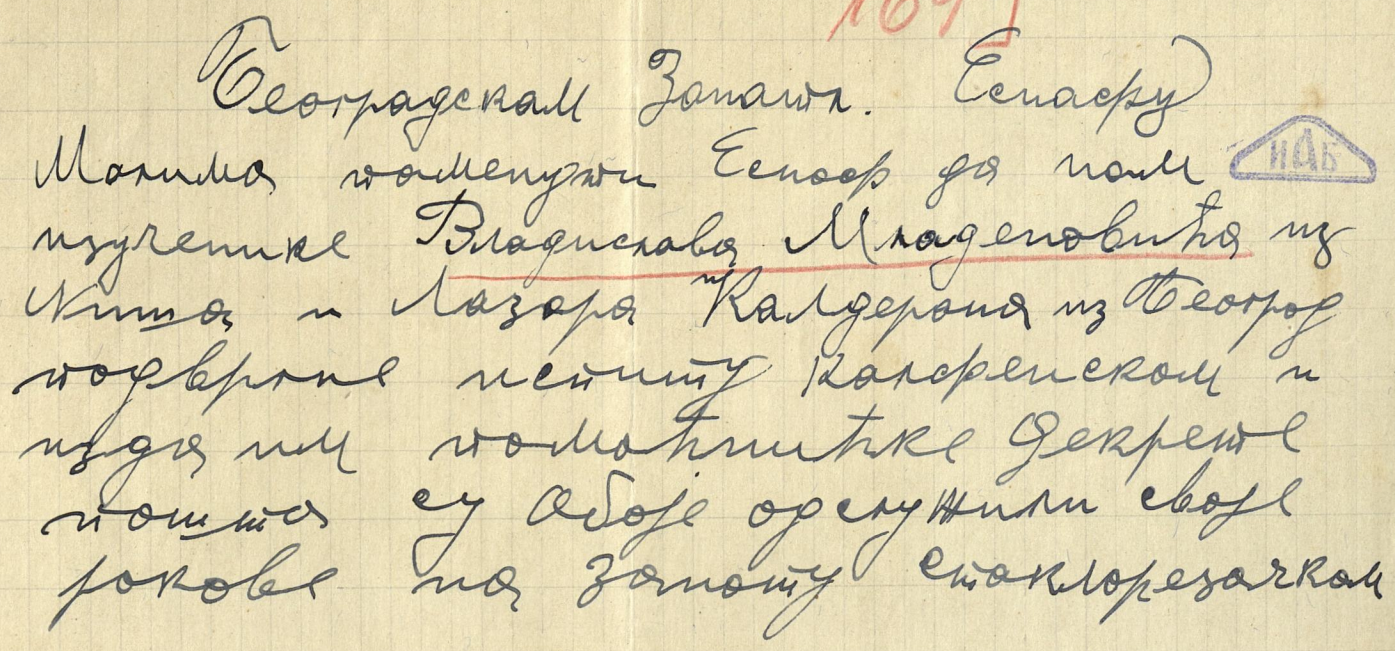 1641
Београдском Занатл. Еснафу
Молимо поменути Еснаф да нам
ИАБ
изученике Владислава Младеновића из
Ниша и Лазара Калдерона из Београд
подвргне испиту Калфенском и
изда им помоћничке Декрете
пошто су Обоје одслужили своје
рокове на Занату стаклорезачком